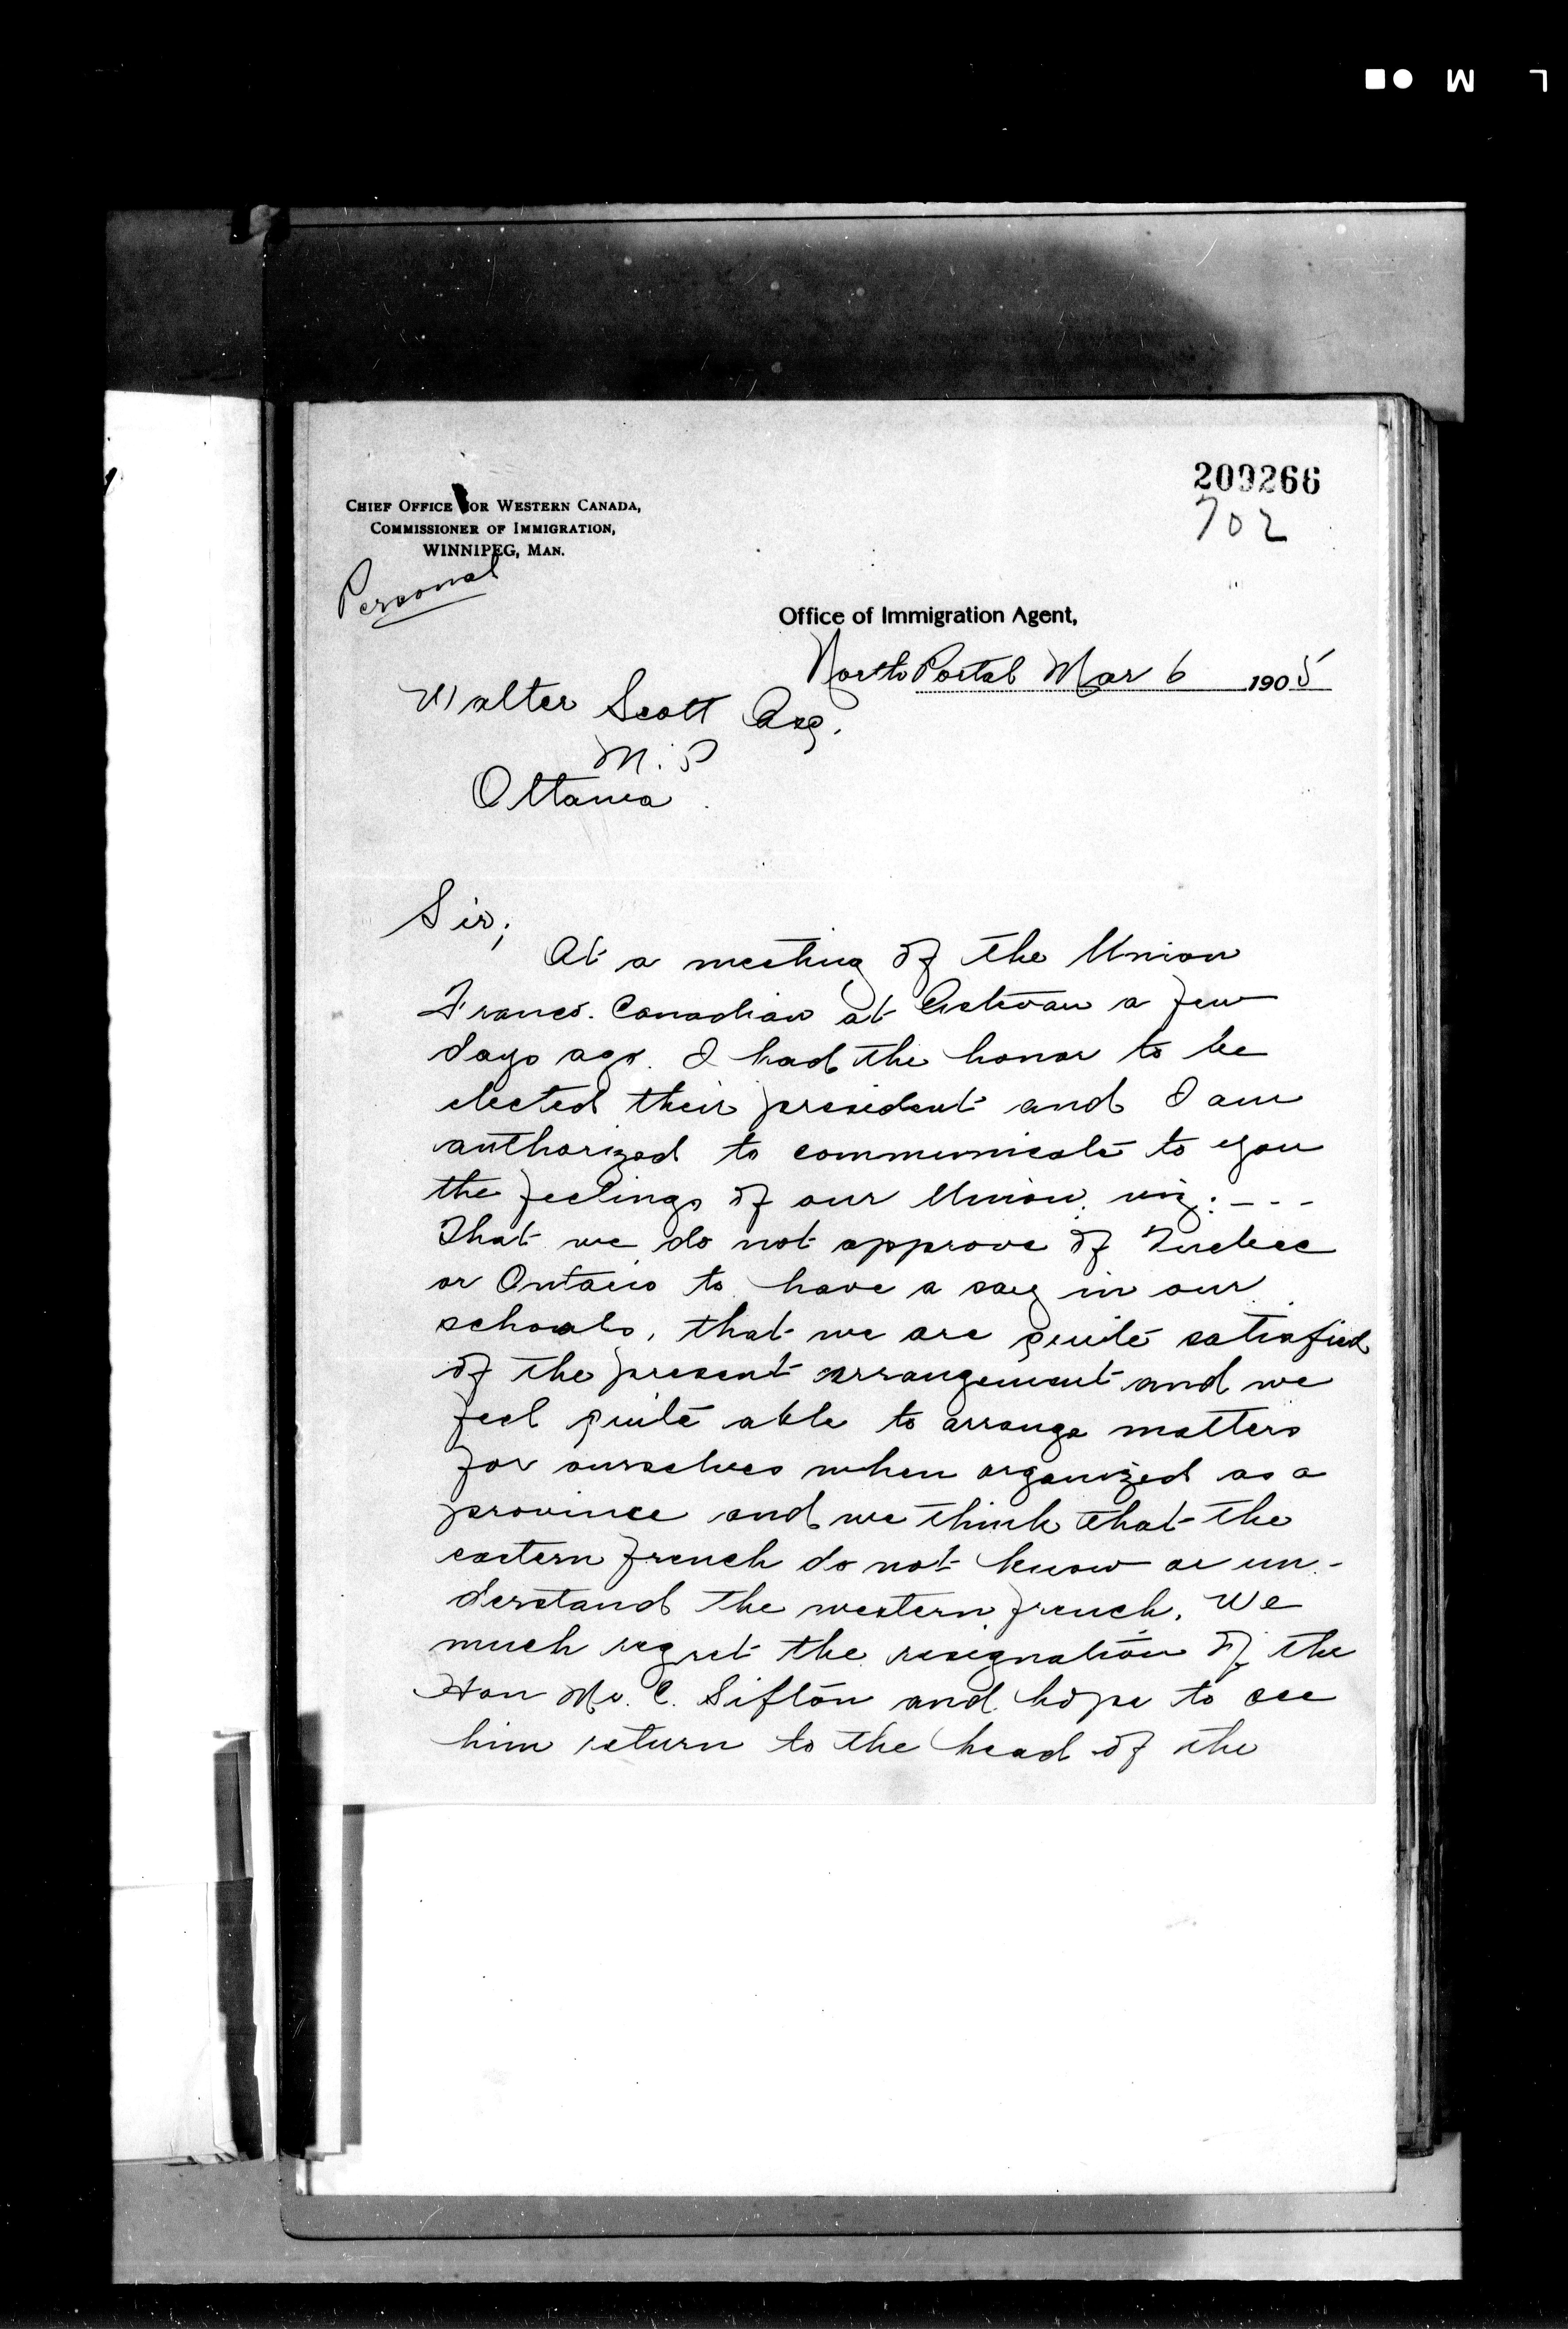 L M
209266
702
CHIEF OFFICE FOR WESTERN CANADA,
COMMISSIONER OF IMMIGRATION,
WINNIPEG, MAN.
Personal
Office of Immigration Agent,
North Portal Mar 6 1905
Walter Scott Esq.
M.P
Ottawa
Sir;
At a meeting of the Union
Franco. Canadian at Estevan a few
days ago. I had the honor to be
elected their president and I am
authorized to communicate to you
the feelings of our Union, viz: - - -
That we do not approve of Quebec
or Ontario to have a say in our
schools, that we are quite satisfied
of the present arrangement and we
feel quite able to arrange matters
for ourselves when organized as a
province and we think that the
eastern french do not know or un-
derstand the western french. We
much regret the resignation of the
Hon Mr. C. Sifton and hope to see
him return to the head of the